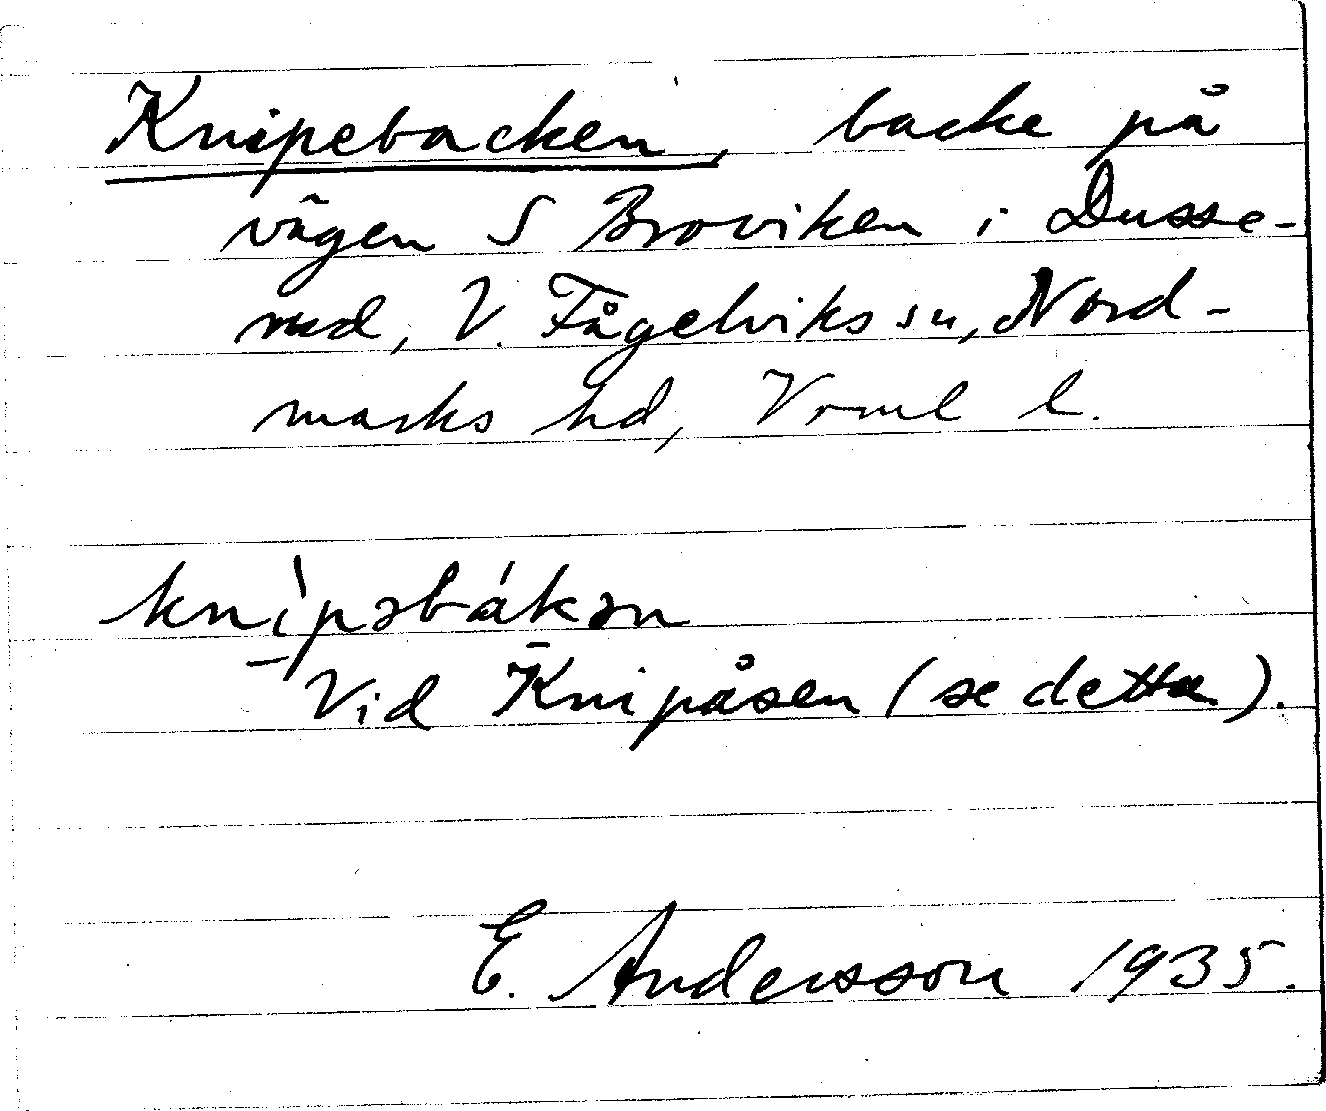 Knipebacken, backe på
vägen S Broviken i Dusse-
rud, V. Fågelviks sn, Nord-
marks hd, Vrml l.
knìpəbákən
Vid Knipåsen (se detta).
E. Andersson 1935.